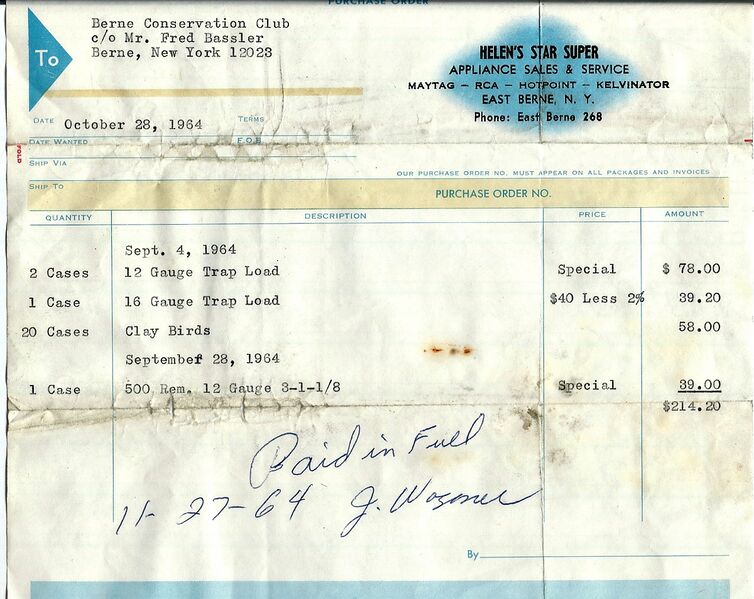 PURCHASE ORDER
To
Berne Conservation Club
c/o Mr. Fred Bassler
Berne, New York 12023
HELEN'S STAR SUPER
APPLIANCE SALES & SERVICE
MAYTAG — RCA — HOTPOINT — KELVINATOR
EAST BERNE, N. Y.
Phone: East Berne 268
DATE October 28, 1964 TERMS
DATE WANTED F.O.B.
FOLD
SHIP VIA
OUR PURCHASE ORDER NO. MUST APPEAR ON ALL PACKAGES AND INVOICES
SHIP TO
PURCHASE ORDER NO.
QUANTITY DESCRIPTION PRICE AMOUNT
Sept. 4, 1964
2 Cases 12 Gauge Trap Load Special $ 78.00
1 Case 16 Gauge Trap Load $40 Less 2% 39.20
20 Cases Clay Birds 58.00
September 28, 1964
1 Case 500 Rem. 12 Gauge 3-1-1/8 Special 39.00
$214.20
Paid in Full
11-27-64 J. Wagoner
By